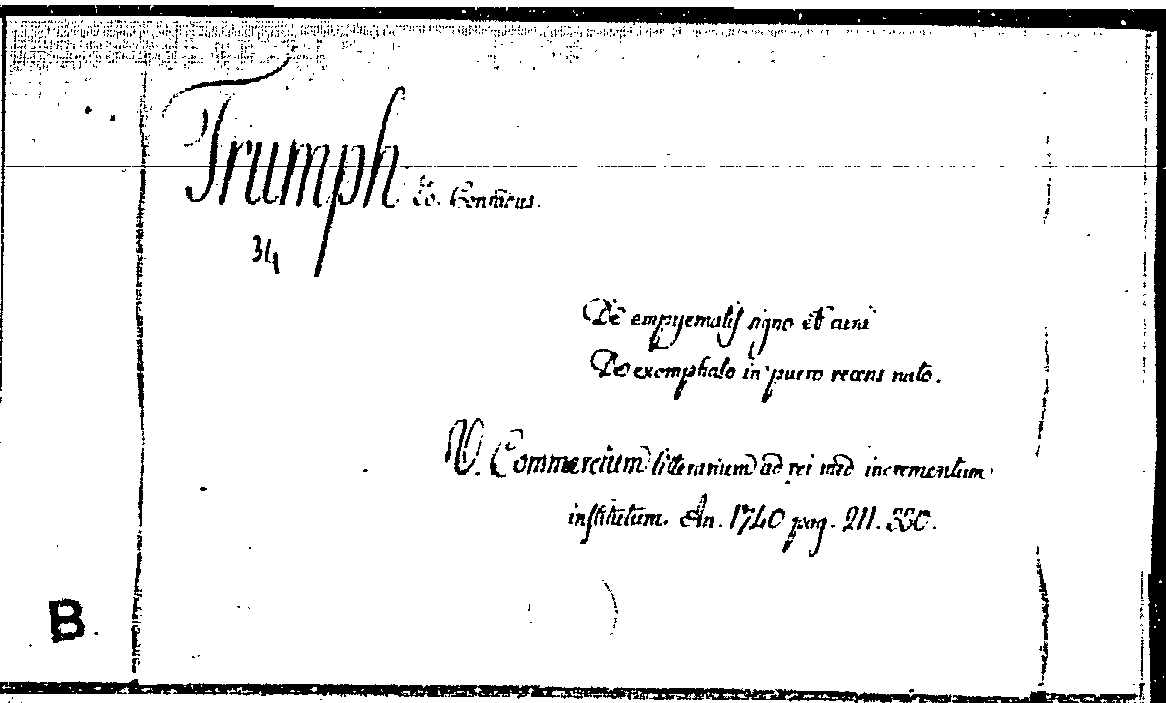 Trumph Io. Conradus.
34
De empyematis signo et cura
De exomphalo in puero recens nato.
V. Commercium litterarium ad rei med incrementum
institutum. An. 1740 pag. 211. 330.
B